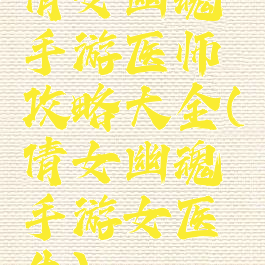 倩女幽魂
手游医师
攻略大全(
倩女幽魂
手游女医
生)